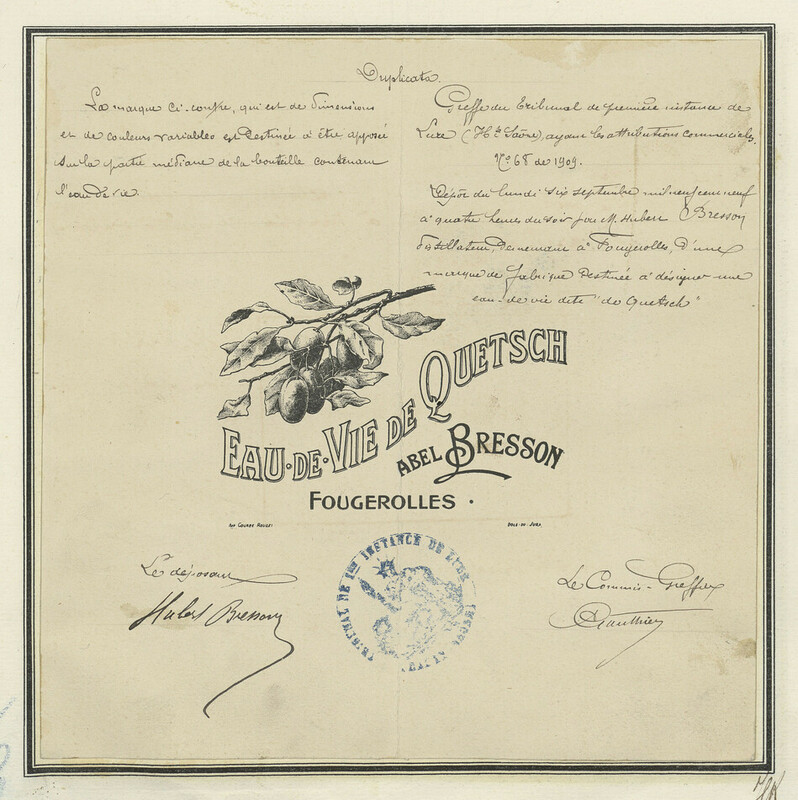 Duplicata
La marque ci-contre, qui est de dimensions
et de couleurs variables est destinée à être apposée
sur la partie médiane de la bouteille contenant
l'eau de vie.
Greffe du tribunal de première instance de
Lure (Hte Saône), ayant les attributions commerciales.
No 68 de 1909.
Dépôt du lundi six septembre mil neuf cent neuf
à quatre heures du soir par M. Hubert Bresson
distillateur, demeurant à Fougerolles, d'une
marque de fabrique destinée à désigner une
eau-de-vie dite "de Quetsch"
EAU-DE-VIE DE QUETSCH
ABEL BRESSON
FOUGEROLLES.
DOLE-DU-JURA
Le déposant
Hubert Bresson
TRIBUNAL DE 1ère INSTANCE DE LURE
Le Commis-Greffier
Gauthier